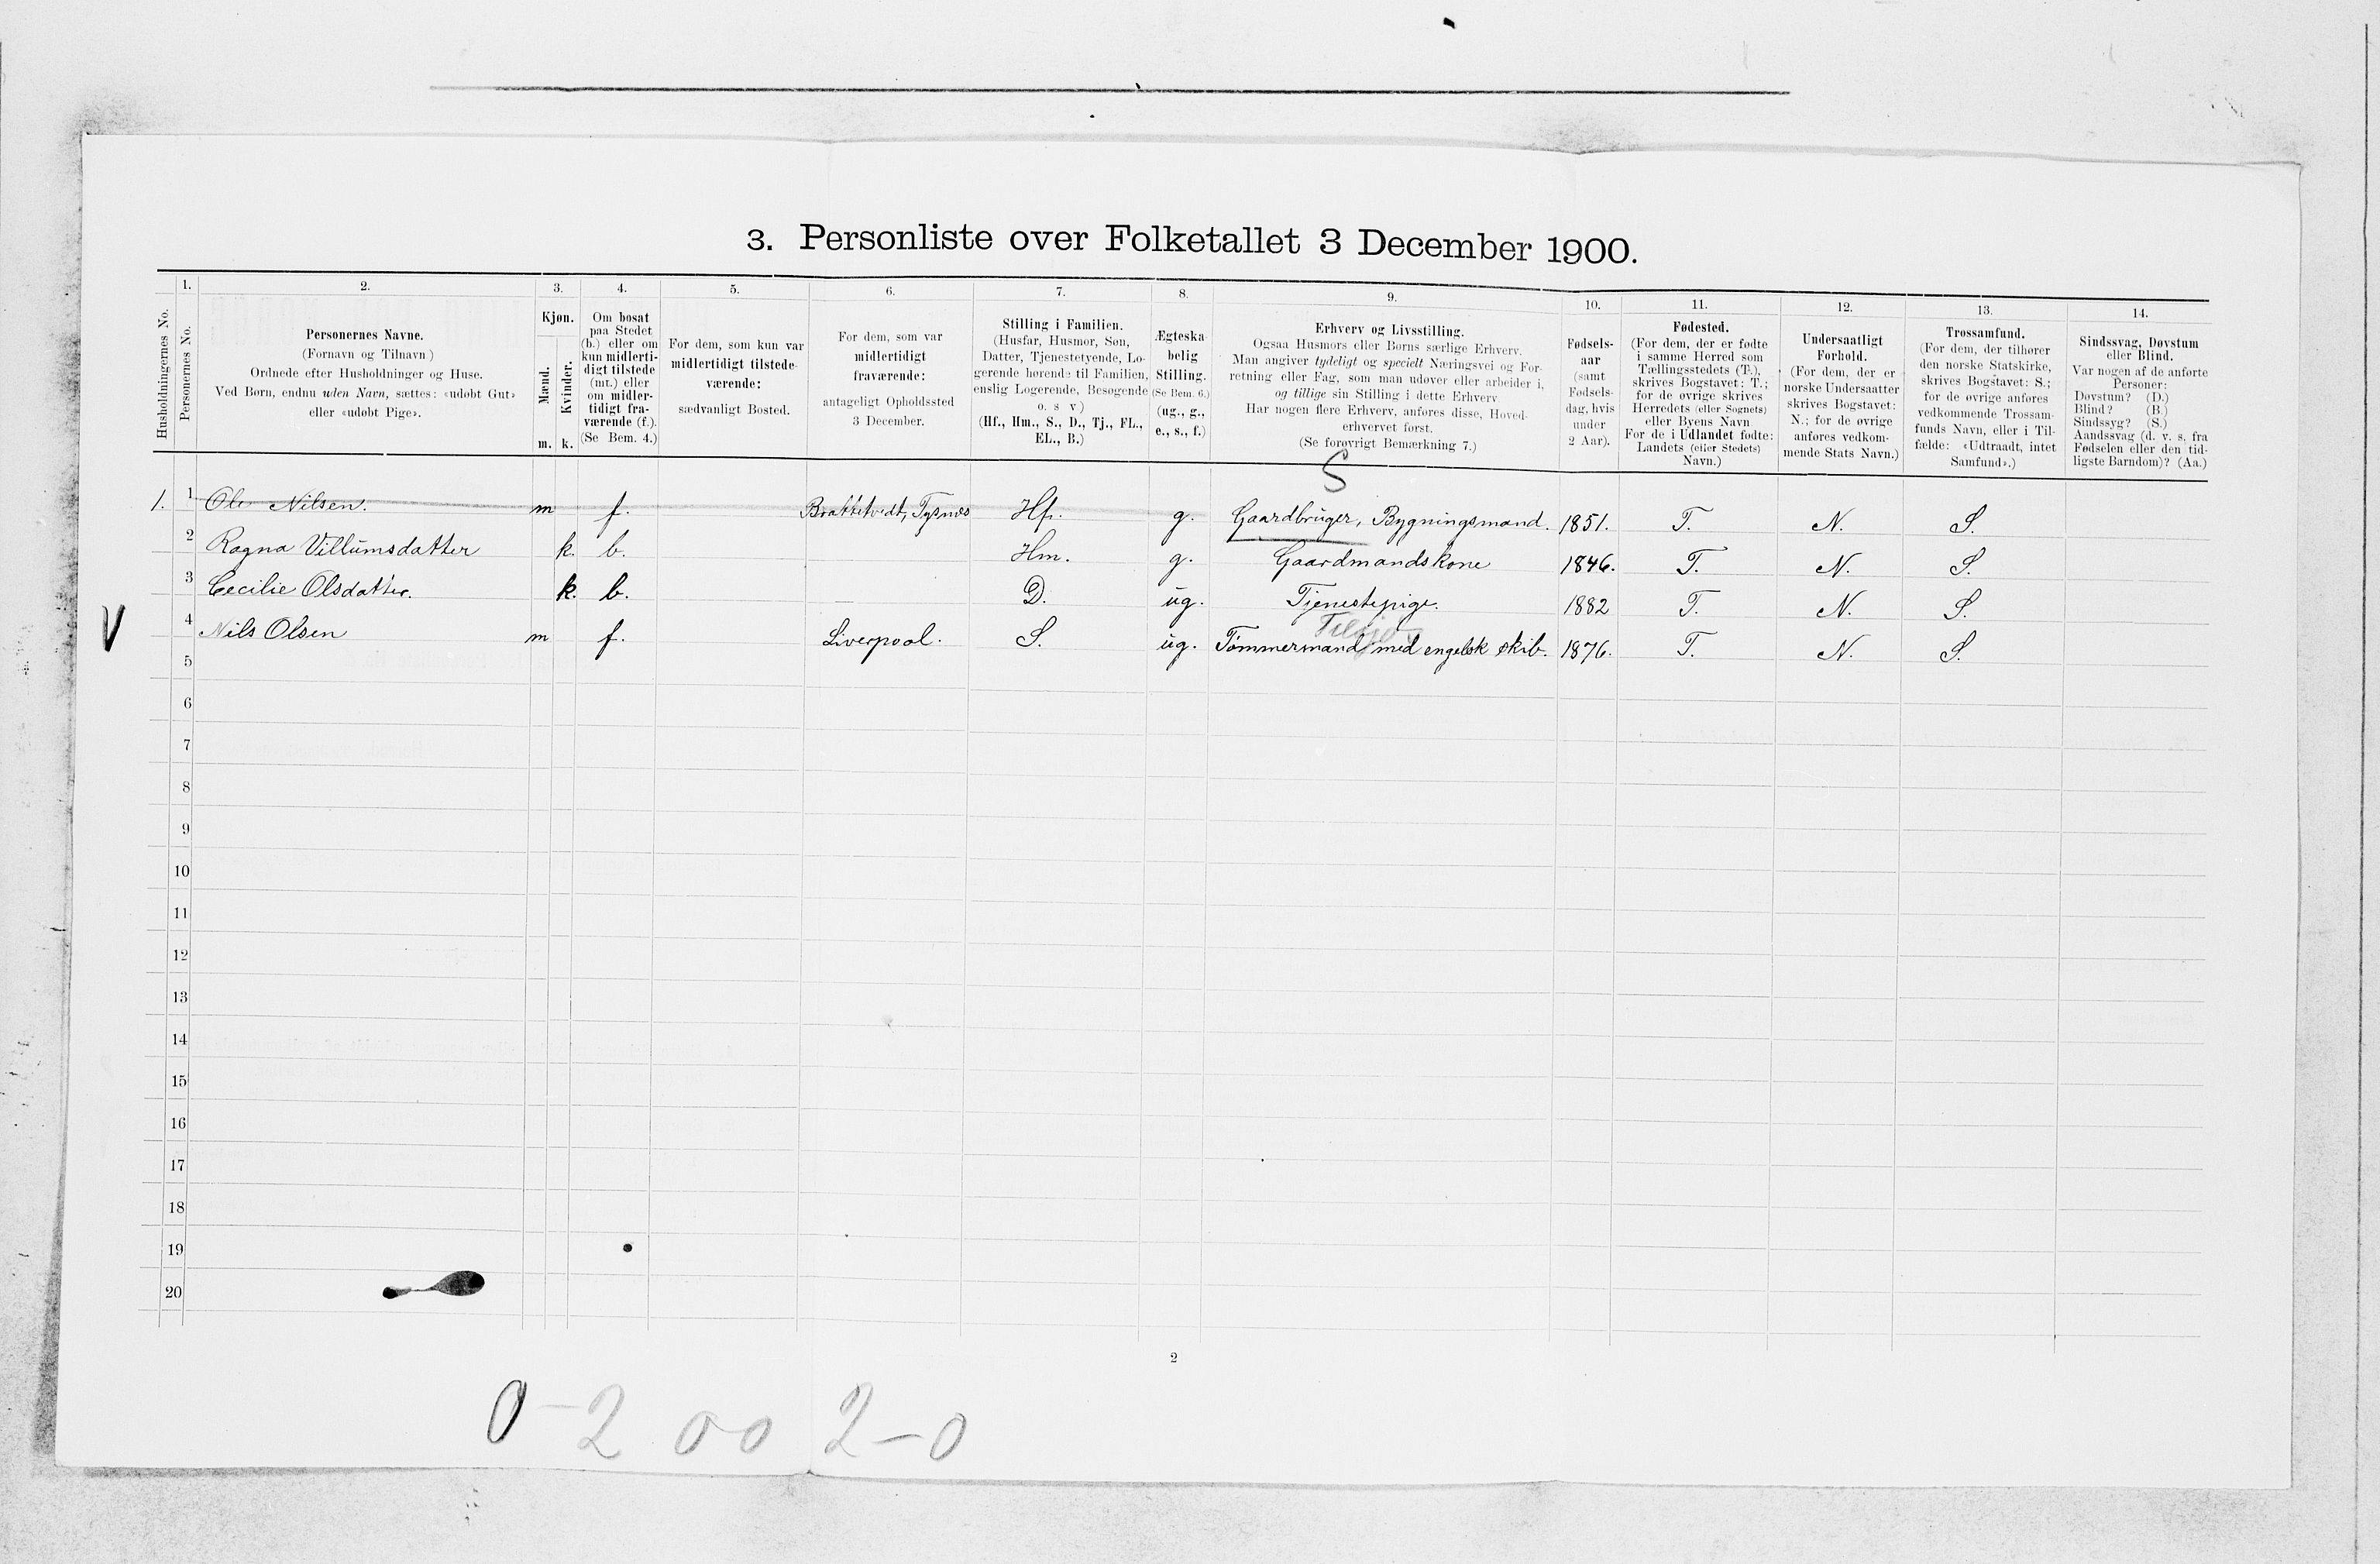 3. Personliste over Folketallet 3 December 1900.
Husholdningernes No.
1.
Personernes No.
2.
Personernes Navne.
(Fornavn og Tilnavn)
Ordnede efter Husholdninger og Huse.
Ved Børn, endnu uden Navn, sættes: «udøbt Gut»
eller «udøbt Pige».
3.
Kjøn.
Mænd.
Kvinder.
m. k.
4.
Om bosat
paa Stedet
(b.) eller om
kun midlerti-
digt tilstede
(mt.) eller
om midler-
tidigt fra-
værende (f.).
(Se Bem. 4.)
5.
For dem, som kun var
midlertidigt tilstede-
værende:
sædvanligt Bosted.
6.
For dem, som var
midlertidigt
fraværende:
antageligt Opholdssted
3 December.
7.
Stilling i Familien.
(Husfar, Husmor, Søn,
Datter, Tjenestetyende, Lo-
gerende hørende til Familien,
enslig Logerende, Besøgende
o. s v)
(Hf., Hm., S., D., Tj., FL.,
EL., B.)
8.
Ægteska-
belig
Stilling.
(Se Bem. 6.)
(ug., g.,
e., s., f.)
9.
Erhverv og Livsstilling.
Ogsaa Husmors eller Børns særlige Erhverv.
Man angiver tydeligt og specielt Næringsvei og For-
retning eller Fag, som man udøver eller arbeider i,
og tillige sin Stilling i dette Erhverv.
Har nogen flere Erhverv, anføres disse, Hoved-
erhvervet først.
(Se forøvrigt Bemærkning 7.)
10.
Fødsels-
aar
(samt
Fødsels-
dag, hvis
under
2 Aar).
11.
Fødested.
(For dem, der er fødte
i samme Herred som
Tællingsstedets (T.),
skrives Bogstavet: T.;
for de øvrige skrives
Herredets (eller Sognets)
eller Byens Navn
For de i Udlandet fødte:
Landets (eller Stedets)
Navn.)
12.
Undersaatligt
Forhold.
(For dem, der er
norske Undersaatter
skrives Bogstavet:
N.; for de øvrige
anføres vedkom-
mende Stats Navn.)
13.
Trossamfund.
(For dem, der tilhører
den norske Statskirke,
skrives Bogstavet: S.;
for de øvrige anføres
vedkommende Trossam-
funds Navn, eller i Til-
fælde: «Udtraadt, intet
Samfund».)
14.
Sindssvag, Døvstum
eller Blind.
Var nogen af de anførte
Personer:
Døvstum? (D.)
Blind? (B.)
Sindssyg? (S.)
Aandssvag (d. v. s. fra
Fødselen eller den tid-
ligste Barndom)? (Aa.)
S
1. 1 Ole Nilsen. m f. Brattetvedt, Tysnes Hf. g. Gaardbruger, Bygningsmand. 1851. T. N. S.
2 Ragna Villumsdatter k. b. Hm. g. Gaardmandskone 1846. T. N. S.
3 Cecilie Olsdatter. k. b. D. ug. Tjenestepige. 1882 T. N. S.
V 4 Nils Olsen m f. Liverpool. S. ug. Tømmermand med engelsk skib. 1876. T. N. S.
5
6
7
8
9
10
11
12
13
14
15
16
17
18
19
20
2
0 - 2 00 2 - 0